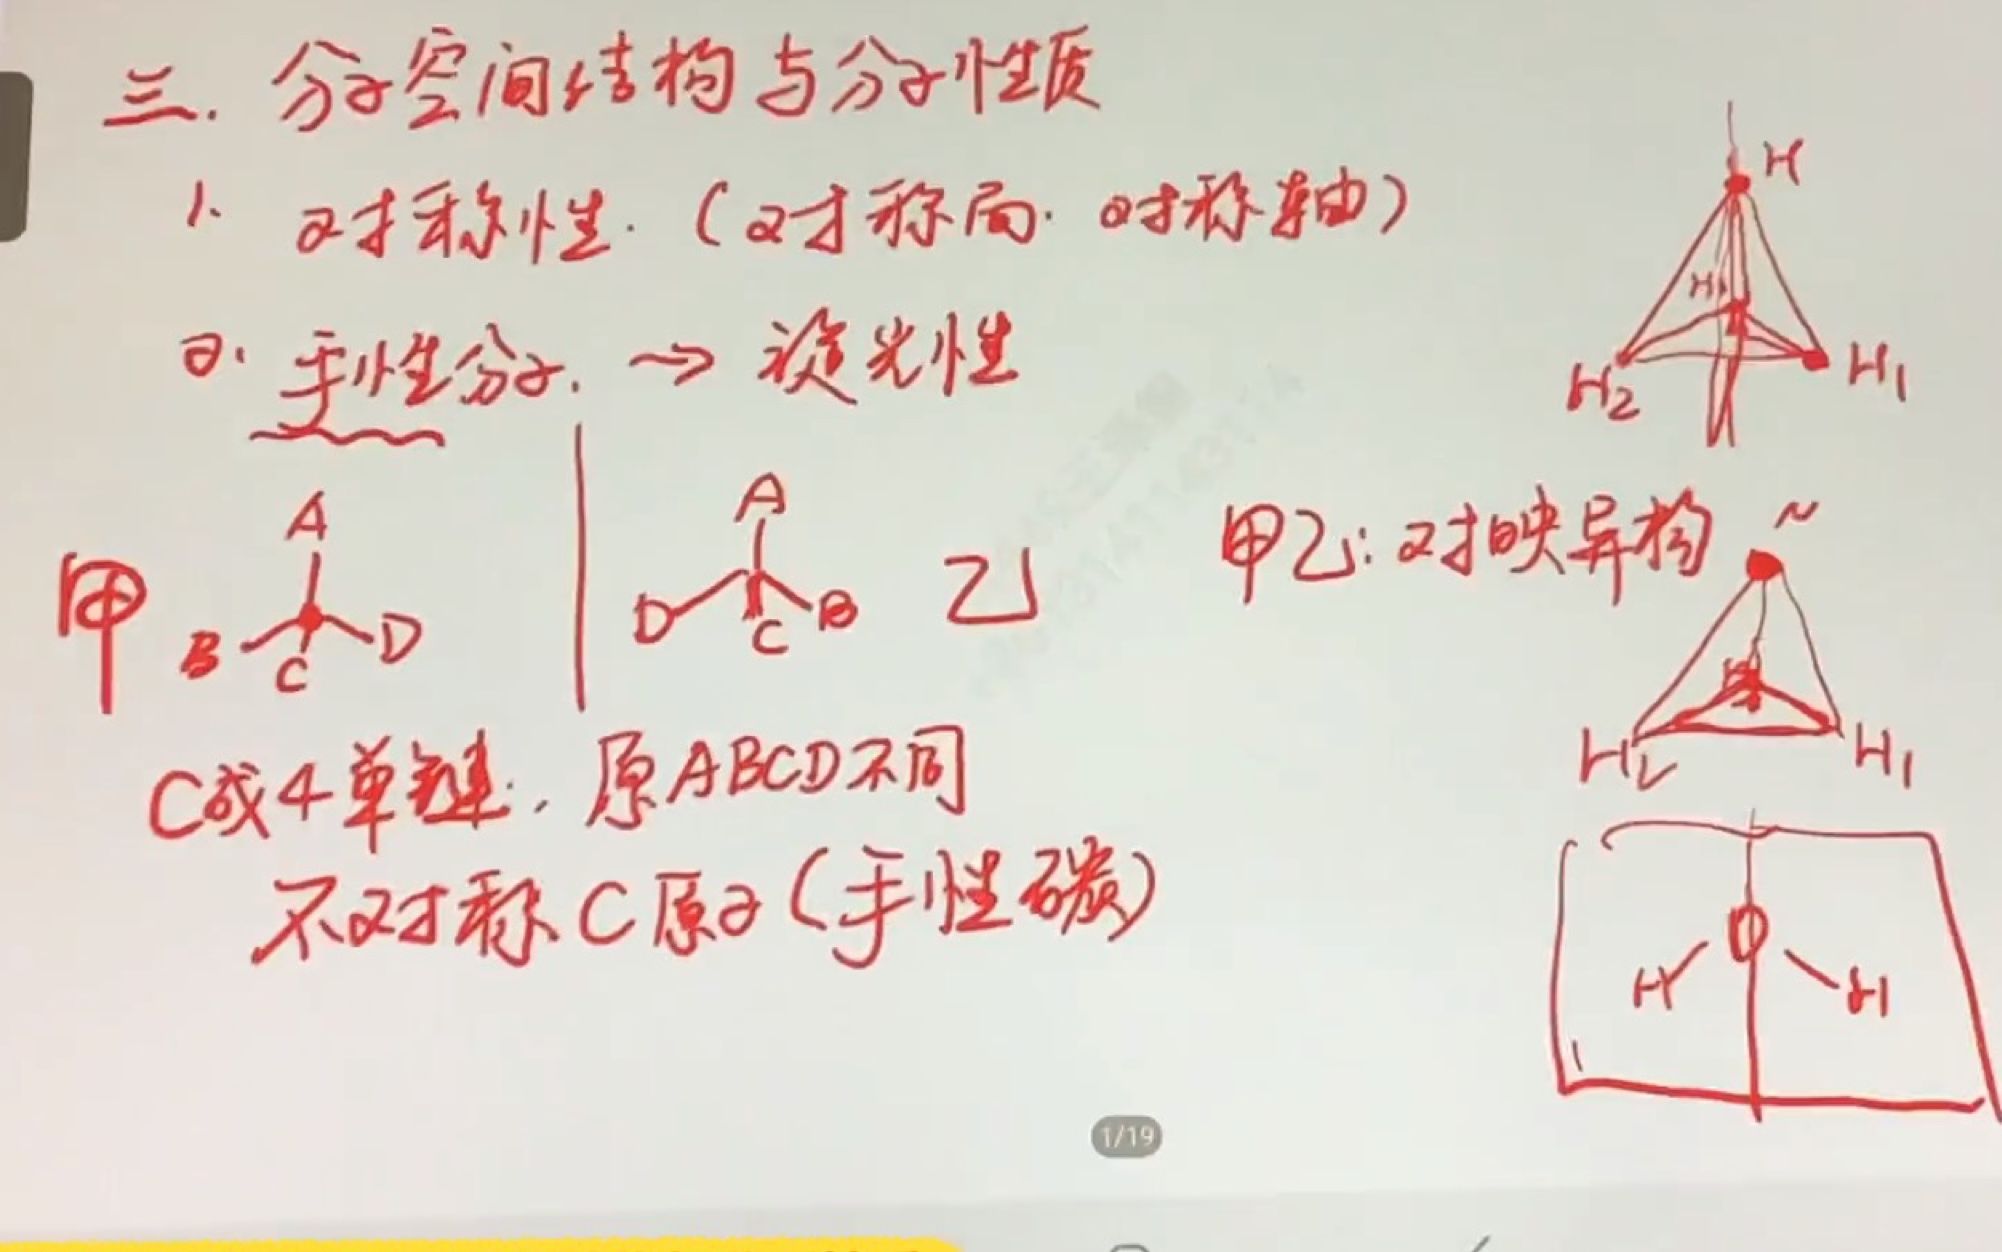 三. 分子空间结构与分子性质
1. 对称性. (对称面. 对称轴)
2. 手性分子. → 旋光性
甲
A
B
C
D
A
D
C
B
乙
甲乙: 对映异构
C成4单键, 原ABCD不同
不对称C原子(手性碳)
H
H
H2
H1
N
H1
H
O
H
1/19